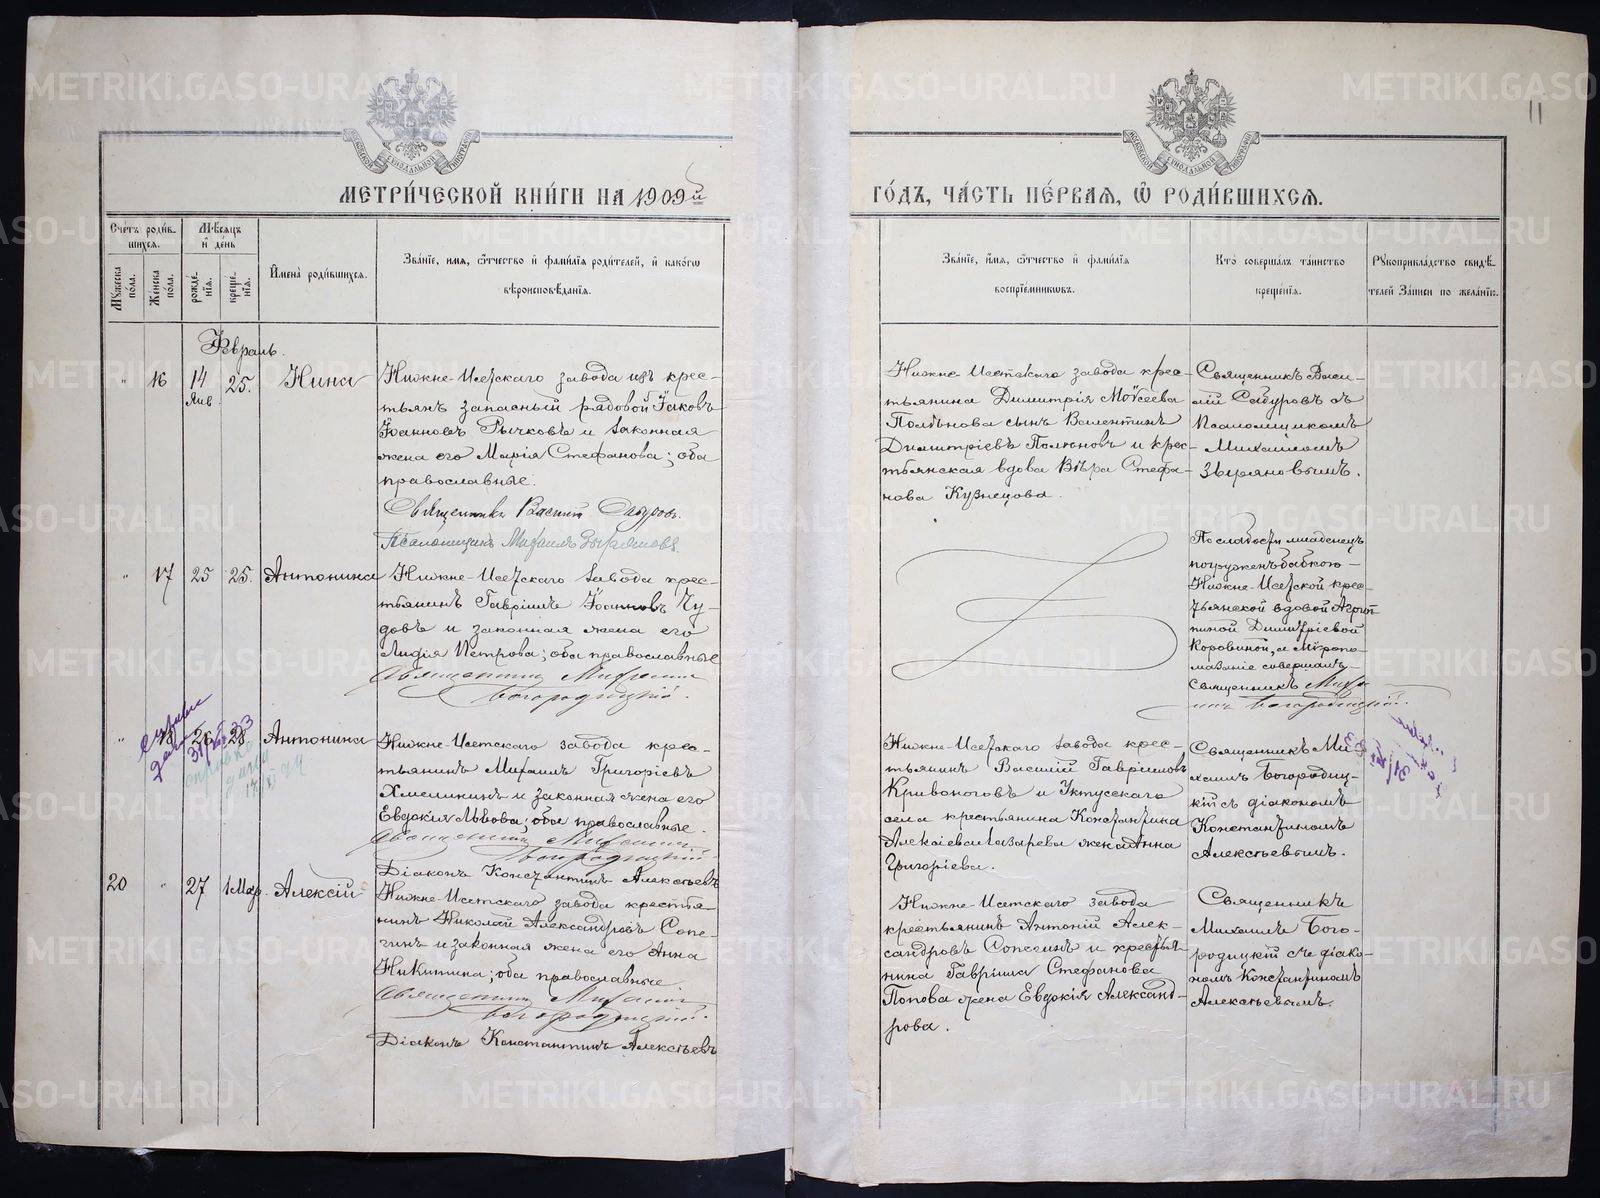 МЕТРИ́ЧЕСКОЙ КНИ́ГИ НА 1909й
ГО́ДЪ, ЧА́СТЬ ПЕ́РВАѦ, Ѡ҆ РОДИ́ВШИХСѦ.
11
Сче́тъ роди́вшихсѧ.
Мѣ́сѧцъ и҆ де́нь
Мꙋ́жеска по́ла.
Же́нска по́ла.
рожде́нїѧ.
креще́нїѧ.
И҆мена̀ роди́вшихсѧ.
Зва́нїе, и҆́мѧ, ѻ҆́тчество и҆ фами́лїѧ роди́телей, и҆ како́гѡ
вѣроисповѣ́данїѧ.
Зва́нїе, и҆́мѧ, ѻ҆́тчество и҆ фами́лїѧ
воспрїе́мникѡвъ.
Кто̀ соверша́лъ та́инство
креще́нїѧ.
Рꙋкоприкла́дство свидѣ́телей
За́писи по жела́нїю.
Февраль.
" 16 14 Янв. 25. Нина
Нижне-Исетскаго завода изъ крес-
тьянъ запасный рядовой Іаковъ
Іоанновъ Рычковъ и законная
жена его Марія Стефанова; оба
православные.
Священникъ Василій Сабуровъ.
Псаломщикъ Михаилъ Зыряновъ.
Нижне-Исетскаго завода крес-
тьянина Димитрія Моѵсеева
сынъ Валентинъ
Димитріевъ и крес-
тьянская вдова Вѣра Стефа-
нова Кузнецова.
Священникъ Васи-
лій Сабуровъ съ
Псаломщикомъ
Михаиломъ
Зыряновымъ.
" 17 25 25. Антонина
Нижне-Исетскаго завода крес-
тьянинъ Гавріилъ Іоанновъ Чу-
довъ и законная жена его
Лидія Петрова; оба православные
Священникъ Михаилъ
Богородицкій.
По слабости младенецъ
погруженъ бабкою
Нижне-Исетской крес-
тьянской вдовой Агрип-
пиной Димитріевой
Коровиной, а Мѵропо-
мазаніе совершалъ
Священникъ Миха-
илъ Богородицкій.
" 18 26 28. Антонина
Нижне-Исетскаго завода крес-
тьянинъ Михаилъ Григоріевъ
Хмелининъ и законная жена его
Евдокія Львова; оба православные.
Священникъ Михаилъ
Богородицкій.
Діаконъ Константинъ Алексѣевъ
Нижне-Исетскаго завода крес-
тьянинъ Василій Гавріиловъ
Кривоноговъ и Уктусскаго
села крестьянина Константина
Алексіева Лазарева жена Анна
Григоріева.
Священникъ Ми-
хаилъ Богородиц-
кій съ діакономъ
Константиномъ
Алексѣевымъ.
20 " 27 1 Мар. Алексій
Нижне-Исетскаго завода крестья-
нинъ Николай Александровъ Сопе-
гинъ и законная жена его Анна
Никитина; оба православные
Священникъ Михаилъ
Богородицкій.
Діаконъ Константинъ Алексѣевъ
Нижне-Исетскаго завода
крестьянинъ Антоній Алек-
сандровъ Сопегинъ и крестья-
нина Гавріила Стефанова
Попова жена Евдокія Александ-
рова.
Священникъ
Михаилъ Бого-
родицкій съ діако-
номъ Константиномъ
Алексѣевымъ.
METRIKI.GASO-URAL.RU